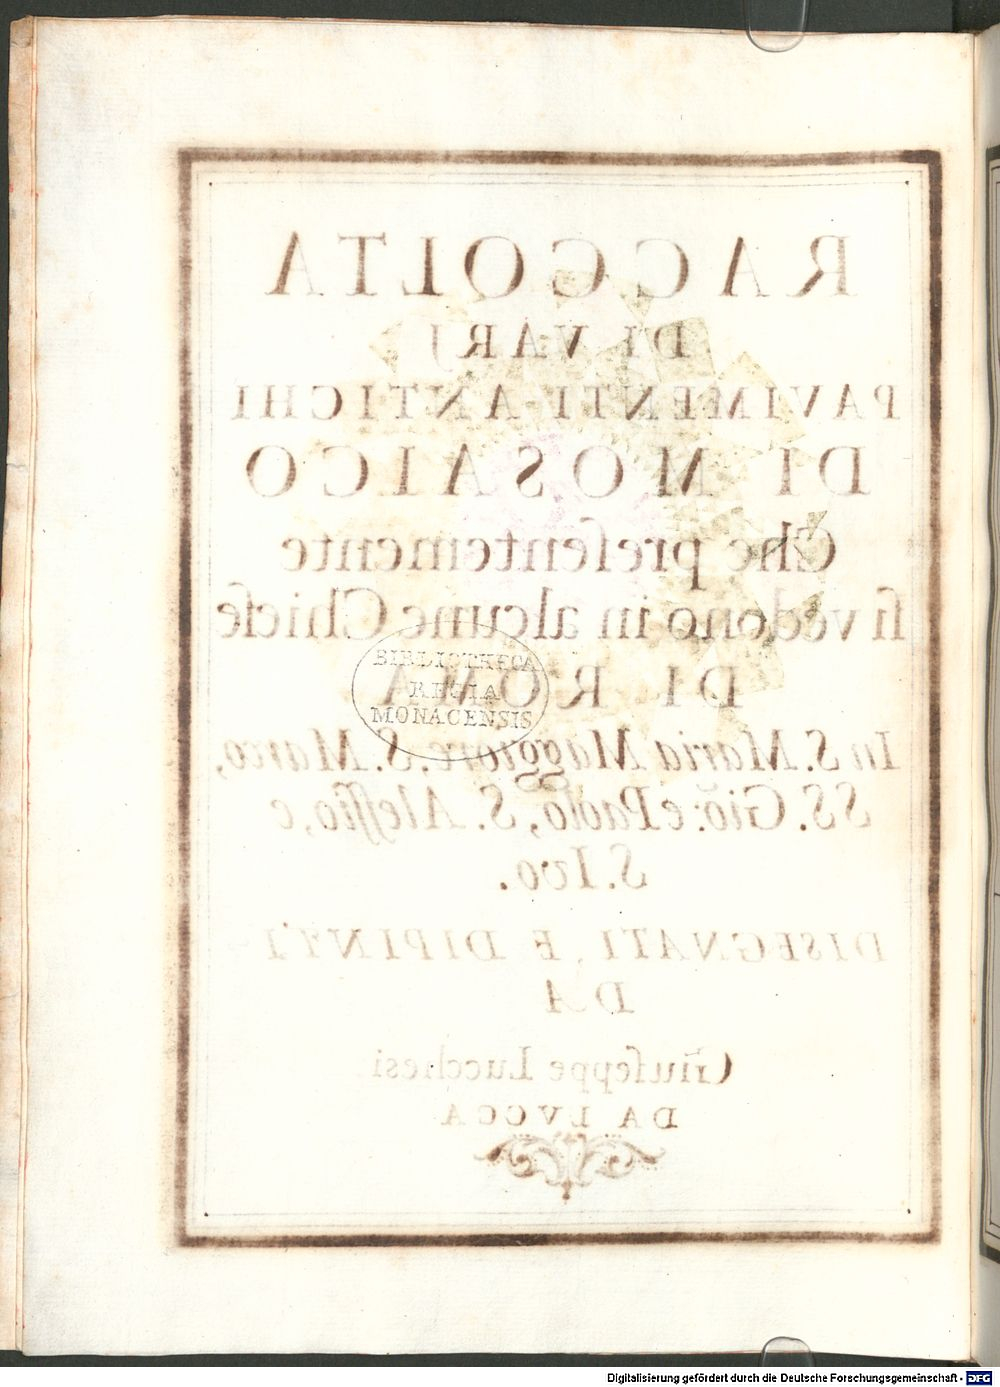 RACCOLTA
DI VARJ
PAVIMENTI ANTICHI
DI MOSAICO
Che preſentemente
ſi vedono in alcune Chieſe
DI ROMA
BIBLIOTHECA
REGIA
MONACENSIS
In S. Maria Maggiore, S. Marco,
SS. Gio: e Paolo, S. Aleſſio, e
S. Ivo.
DISEGNATI, E DIPINTI
DA
Giuſeppe Lucchesi
DA LVCCA
Digitalisierung gefördert durch die Deutsche Forschungsgemeinschaft - DFG